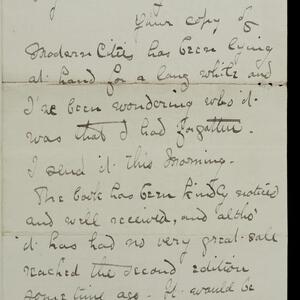 Your copy of
Modern Cities has been lying
at hand for a long while and
I've been wondering who it
was that I had forgotten.
I send it this morning.
The book has been kindly noticed
and well received, and altho'
it has had no very great sale
reached the second edition
some time ago. It would be